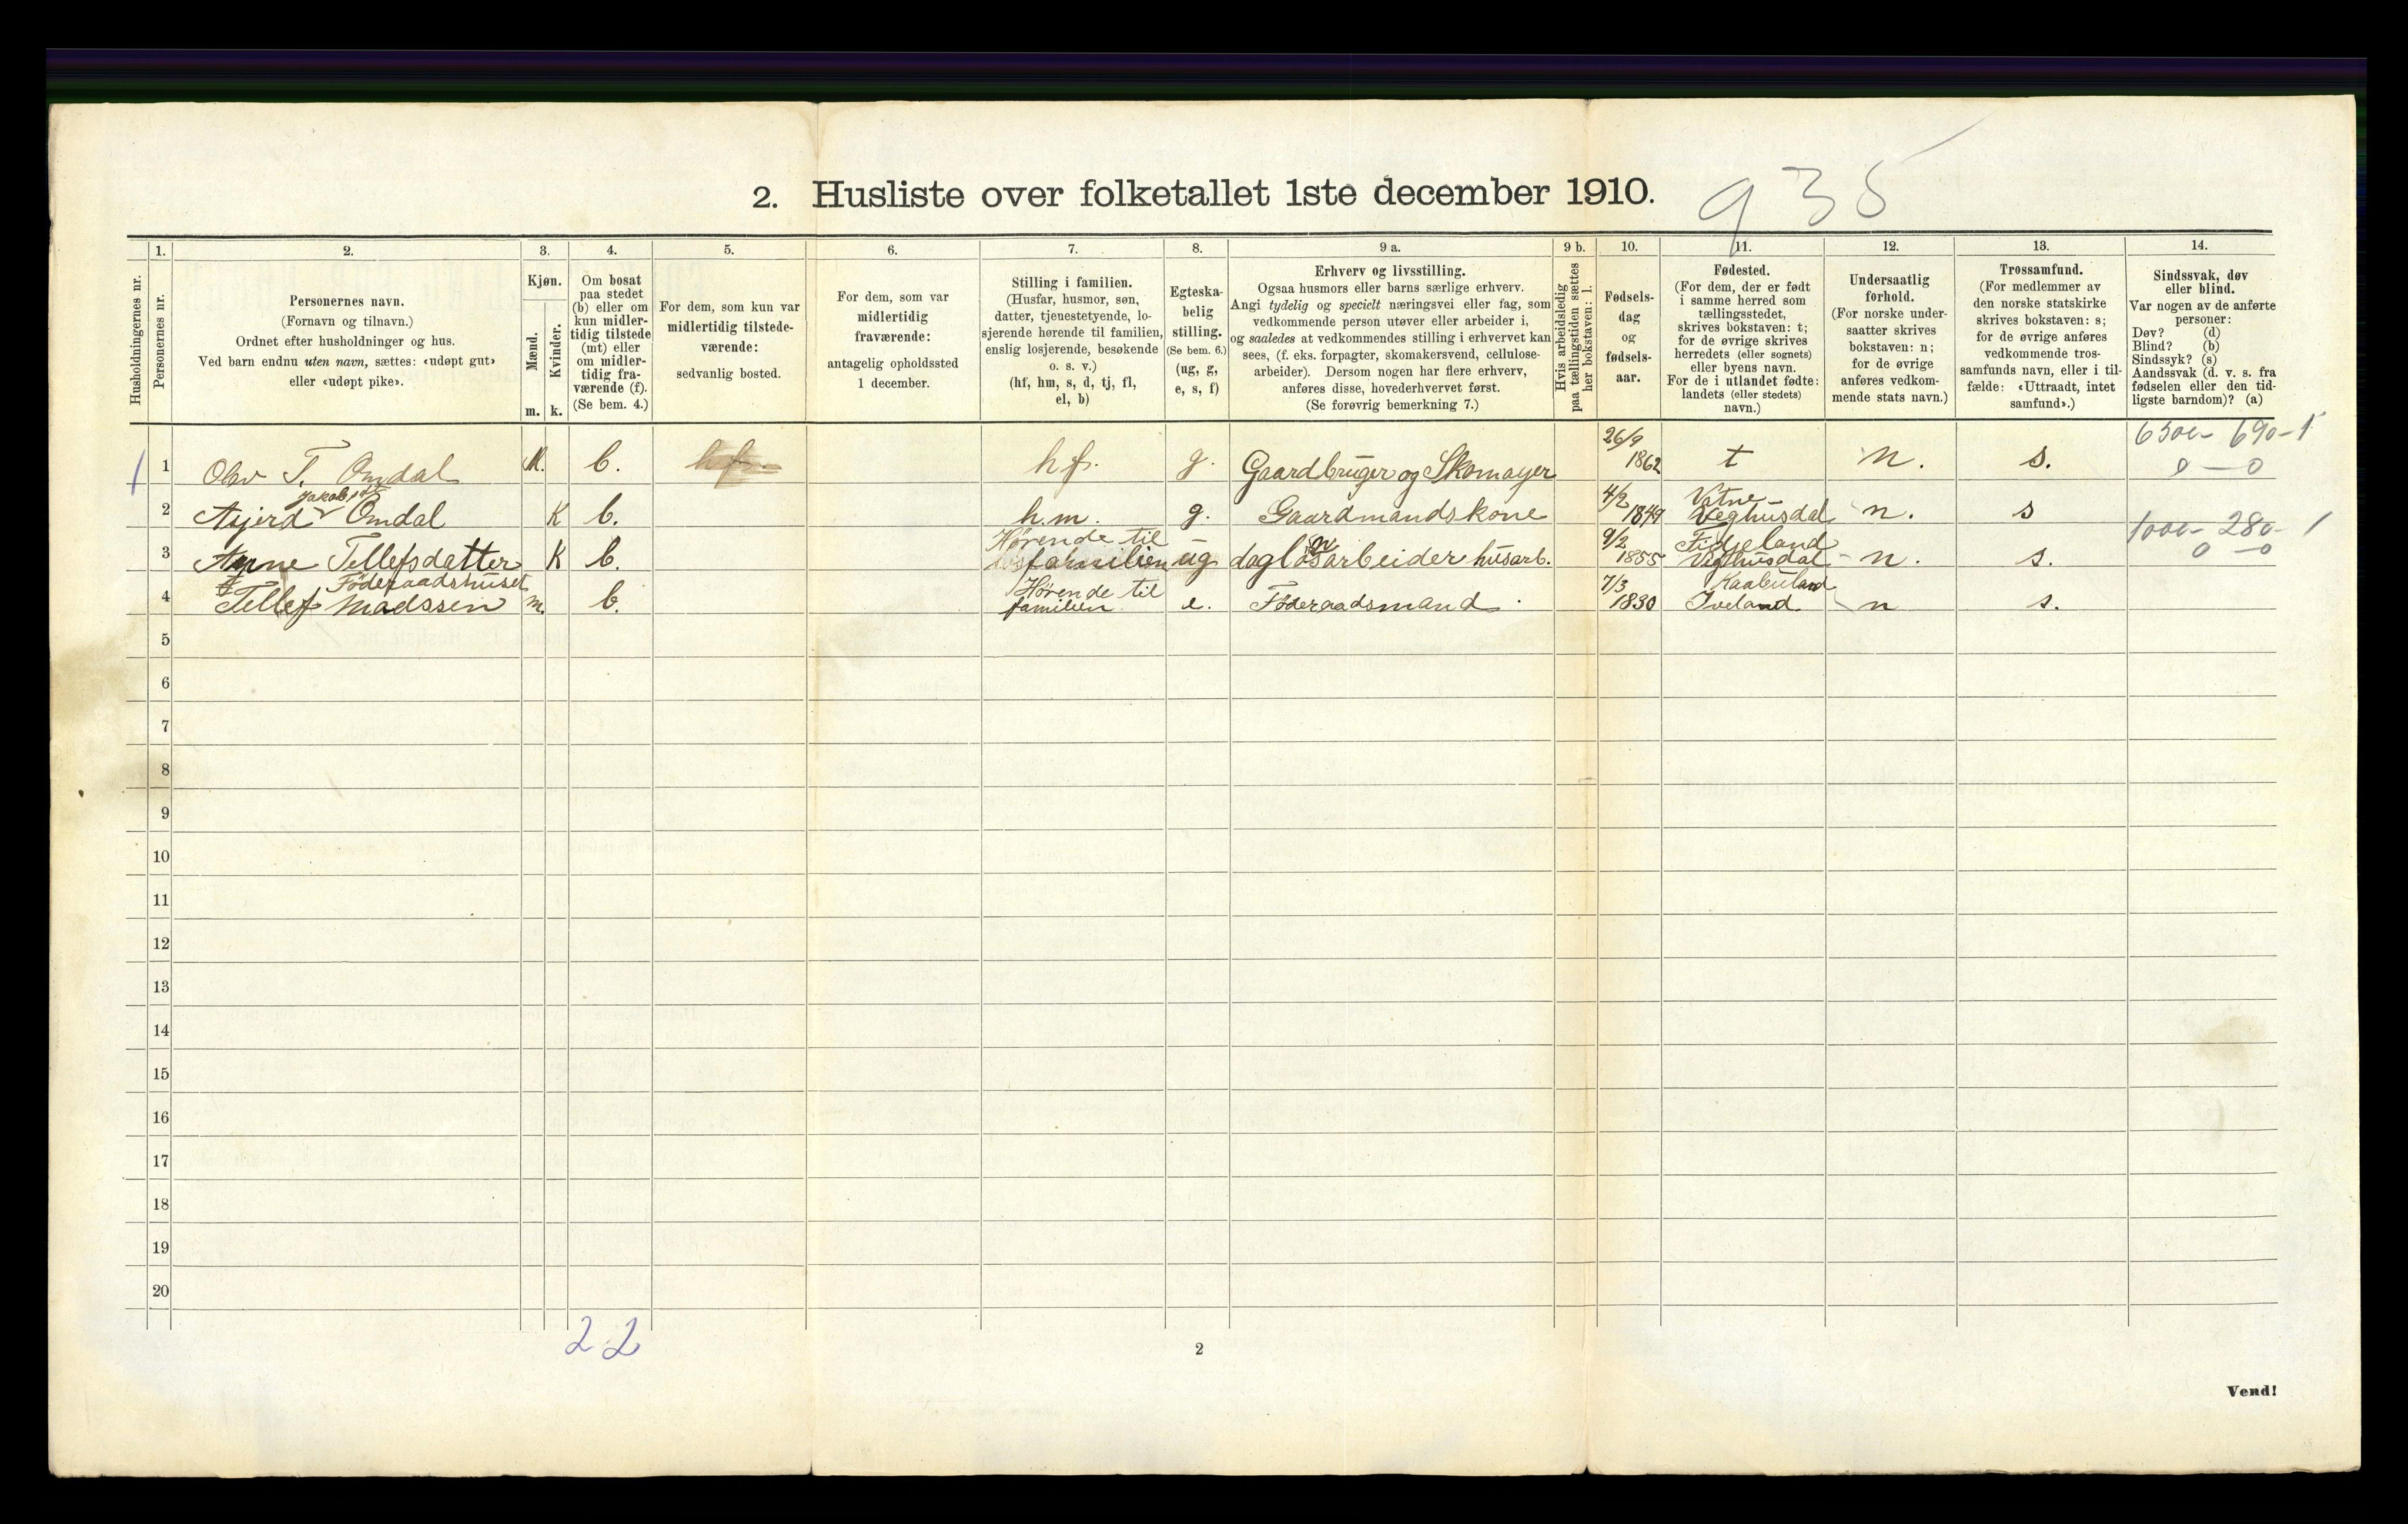 2. Husliste over folketallet 1ste december 1910.
935
1. 2. 3. 4. 5. 6. 7. 8. 9 a. 9 b. 10. 11. 12. 13. 14.
Husholdningernes nr.
Personernes nr.
Personernes navn.
(Fornavn og tilnavn.)
Ordnet efter husholdninger og hus.
Ved barn endnu uten navn, sættes: «udøpt gut»
eller «udøpt pike».
Kjøn.
Mænd.
Kvinder.
m. k.
Om bosat
paa stedet
(b) eller om
kun midler-
tidig tilstede
(mt) eller
om midler-
tidig fra-
værende (f).
(Se bem. 4.)
For dem, som kun var
midlertidig tilstede-
værende:
sedvanlig bosted.
For dem, som var
midlertidig
fraværende:
antagelig opholdssted
1 december.
Stilling i familien.
(Husfar, husmor, søn,
datter, tjenestetyende, lo-
sjerende hørende til familien,
enslig losjerende, besøkende
o. s. v.)
(hf, hm, s, d, tj, fl,
el, b)
Egteska-
belig
stilling.
(Se bem. 6.)
(ug, g,
e, s, f)
Erhverv og livsstilling.
Ogsaa husmors eller barns særlige erhverv.
Angi tydelig og specielt næringsvei eller fag, som
vedkommende person utøver eller arbeider i,
og saaledes at vedkommendes stilling i erhvervet kan
sees, (f. eks. forpagter, skomakersvend, cellulose-
arbeider). Dersom nogen har flere erhverv,
anføres disse, hovederhvervet først.
(Se forøvrig bemerkning 7.)
Hvis arbeidsledig
paa tællingstiden sættes
her bokstaven: l.
Fødsels-
dag
og
fødsels-
aar.
Fødested.
(For dem, der er født
i samme herred som
tællingsstedet,
skrives bokstaven: t;
for de øvrige skrives
herredets (eller sognets)
eller byens navn.
For de i utlandet fødte:
landets (eller stedets)
navn.)
Undersaatlig
forhold.
(For norske under-
saatter skrives
bokstaven: n;
for de øvrige
anføres vedkom-
mende stats navn.)
Trossamfund.
(For medlemmer av
den norske statskirke
skrives bokstaven: s;
for de øvrige anføres
vedkommende tros-
samfunds navn, eller i til-
fælde: «Uttraadt, intet
samfund».)
Sindssvak, døv
eller blind.
Var nogen av de anførte
personer:
Døv? (d)
Blind? (b)
Sindssyk? (s)
Aandssvak (d. v. s. fra
fødselen eller den tid-
ligste barndom)? (a)
1 1 Olav T. Omdal M. b. hf. hf. g. Gaardbruger og Skomager 26/9 1862 t n. s. 6300- 690-1
0 — 0
Jakobsdt
2 Asjerd Omdal K b. h.m. g. Gaardmandskone 4/2 1849 Vatne Veghusdal n. s
3 Anne Tellefsdatter K b. Hørende til familien ug daglønsarbeider husarb. 9/2 1855 Fidjeland Veghusdal n. s. 1000- 280- 1
0 — 0
Föderaadshuset
4 Tellef Madssen m. b. Hørende til familien e. Föderaadsmand 7/3 1830 Kaabuland Iveland n s.
5
6
7
8
9
10
11
12
13
14
15
16
17
18
19
20
2 2
2
Vend!